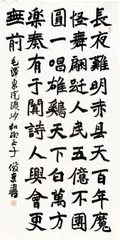 長夜難明赤縣天百年魔
怪舞翩躚人民五億不團
圓一唱雄鷄天下白萬方
樂奏有于闐詩人興會更
無前
毛澤東浣溪沙和柳亞子 書